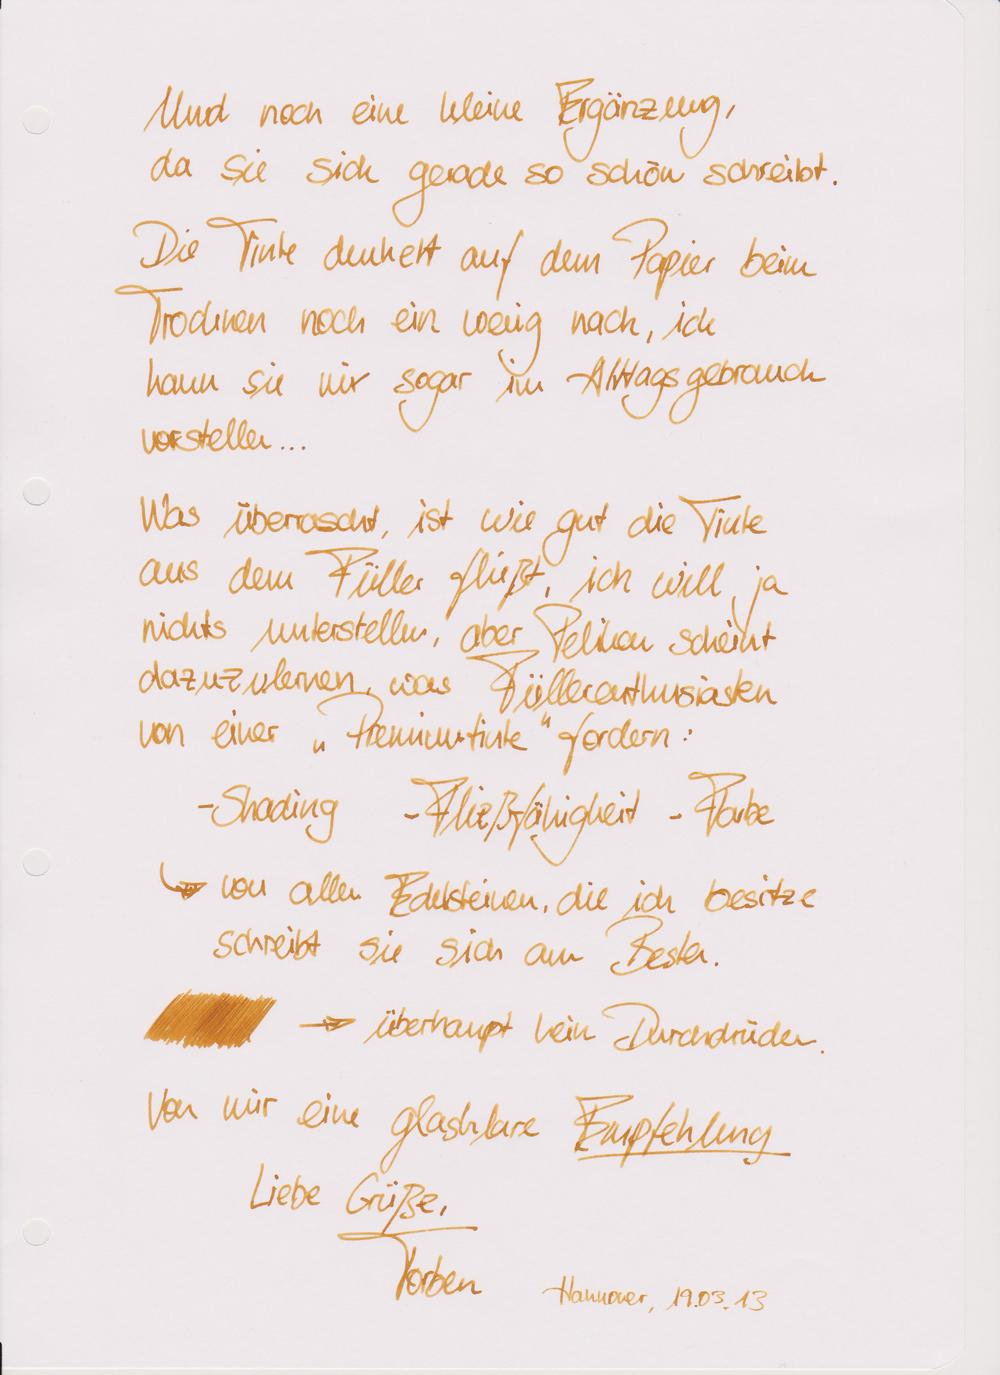 Und noch eine kleine Ergänzung,
da sie sich gerade so schön schreibt.
Die Tinte dunkelt auf dem Papier beim
Trocknen noch ein wenig nach, ich
kann sie mir sogar im Alltagsgebrauch
vorstellen...
Was überrascht, ist wie gut die Tinte
aus dem Füller fließt, ich will ja
nichts unterstellen, aber Pelikan scheint
dazuzulernen, was Füllerenthusiasten
von einer „Premiumtinte" fordern:
-Shading -Fließfähigkeit - Farbe
von allen Edelsteinen, die ich besitze
schreibt sie sich am Besten.
→ überhaupt kein Durchdrücken.
Von mir eine glasklare Empfehlung
Liebe Grüße,
Torben
Hannover, 19.03.13